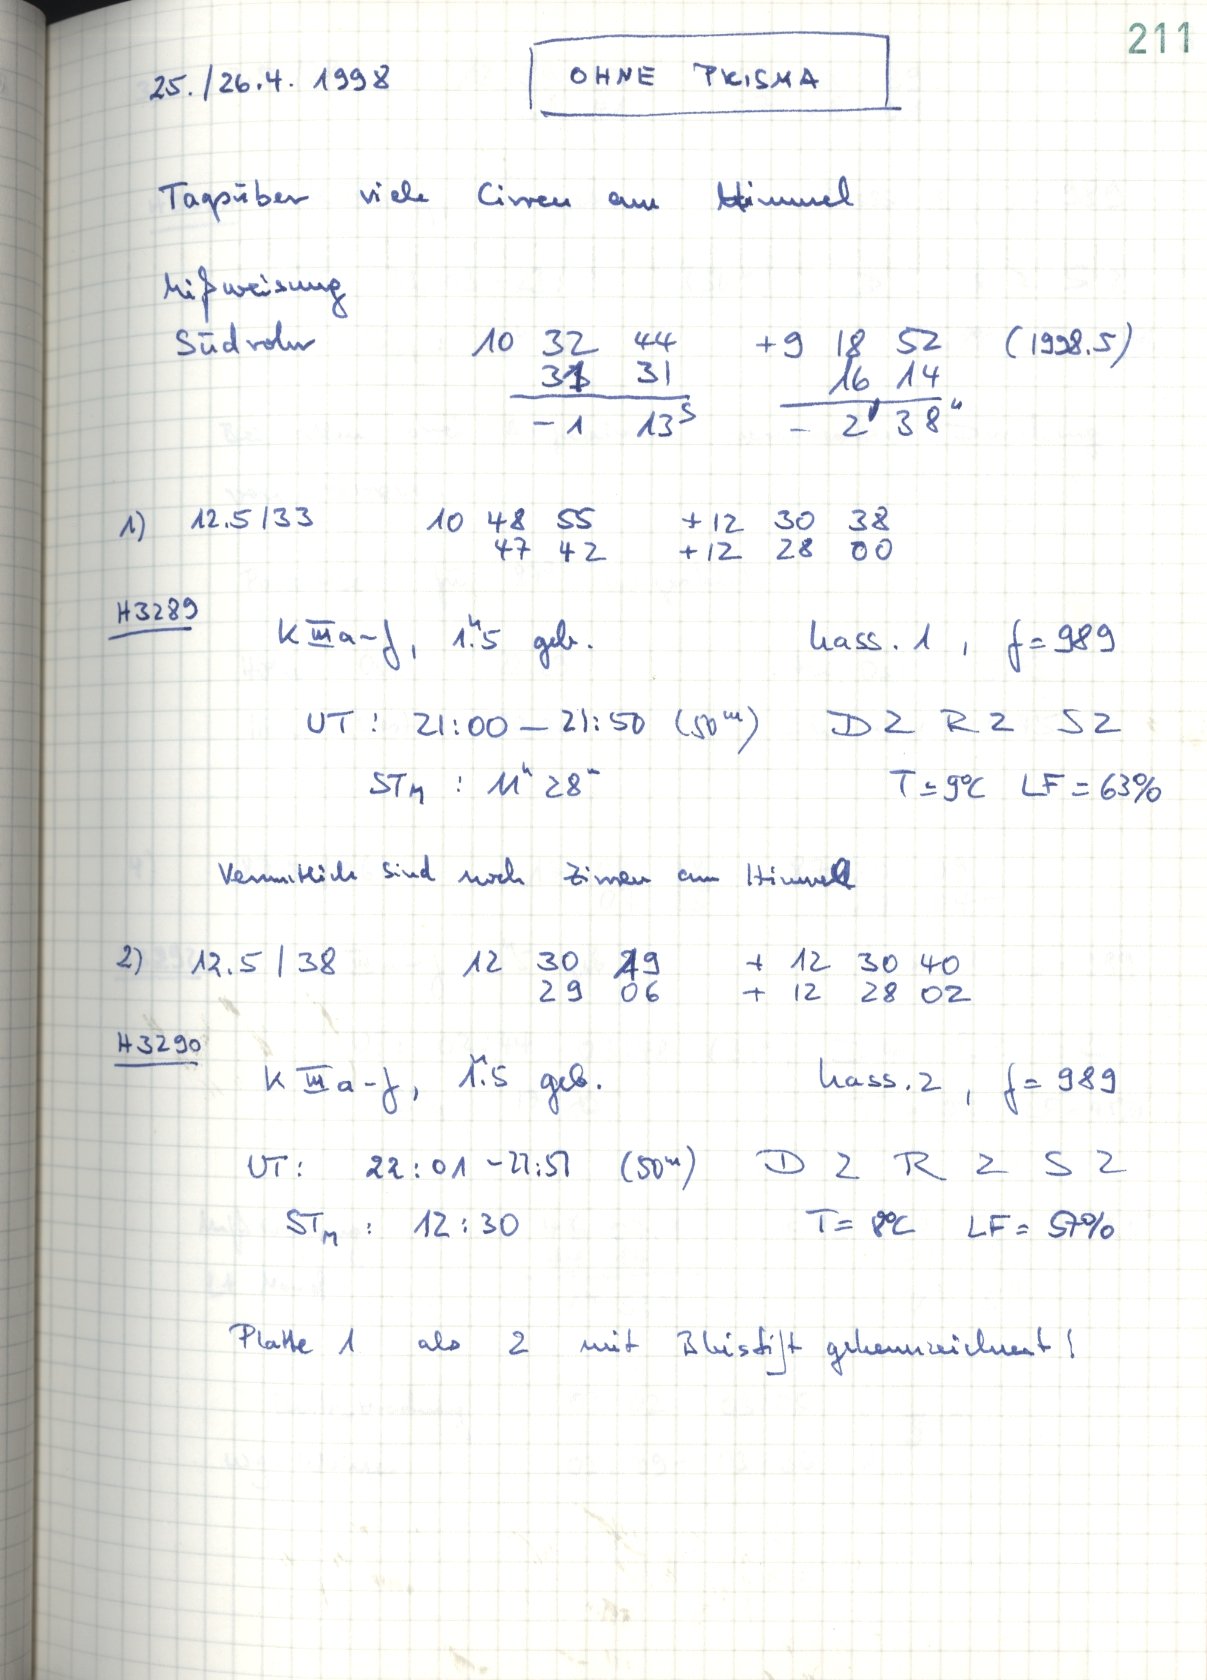 211
25./26.4. 1998 OHNE PRISMA
Tagsüber viele Cirren am Himmel
Mißweisung
Südrohr 10 32 44 +9 18 52 (1998.5)
31 31 16 14
-1 13s - 2' 38"
1) 12.5/33 10 48 55 +12 30 38
47 42 +12 28 00
H3289
K III a-J, 1.h5 geb. Kass. 1, f=989
UT: 21:00 - 21:50 (50m) D2 R2 S2
STM: 11h 28m T=9°C LF=63%
Vermutlich sind noch Zirren am Himmel
2) 12.5/38 12 30 19 + 12 30 40
29 06 + 12 28 02
H3290
K III a-J, 1.h5 geb. Kass. 2, f=989
UT: 22:01 - 22:51 (50m) D 2 R 2 S 2
STM: 12:30 T= 8°C LF= 57%
Platte 1 als 2 mit Bleistift gekennzeichnet!